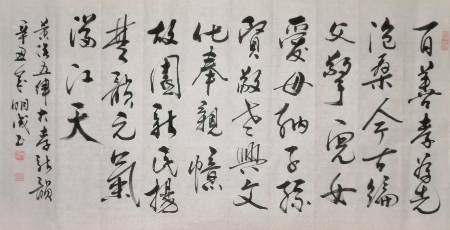 百善孝為先
滄桑今古編
父擎兒女
愛母納子孫
賢敬老興文
化奉親懷
故園新民揚
楚韻元氣
滿江天
五律大孝新韻
辛丑明成